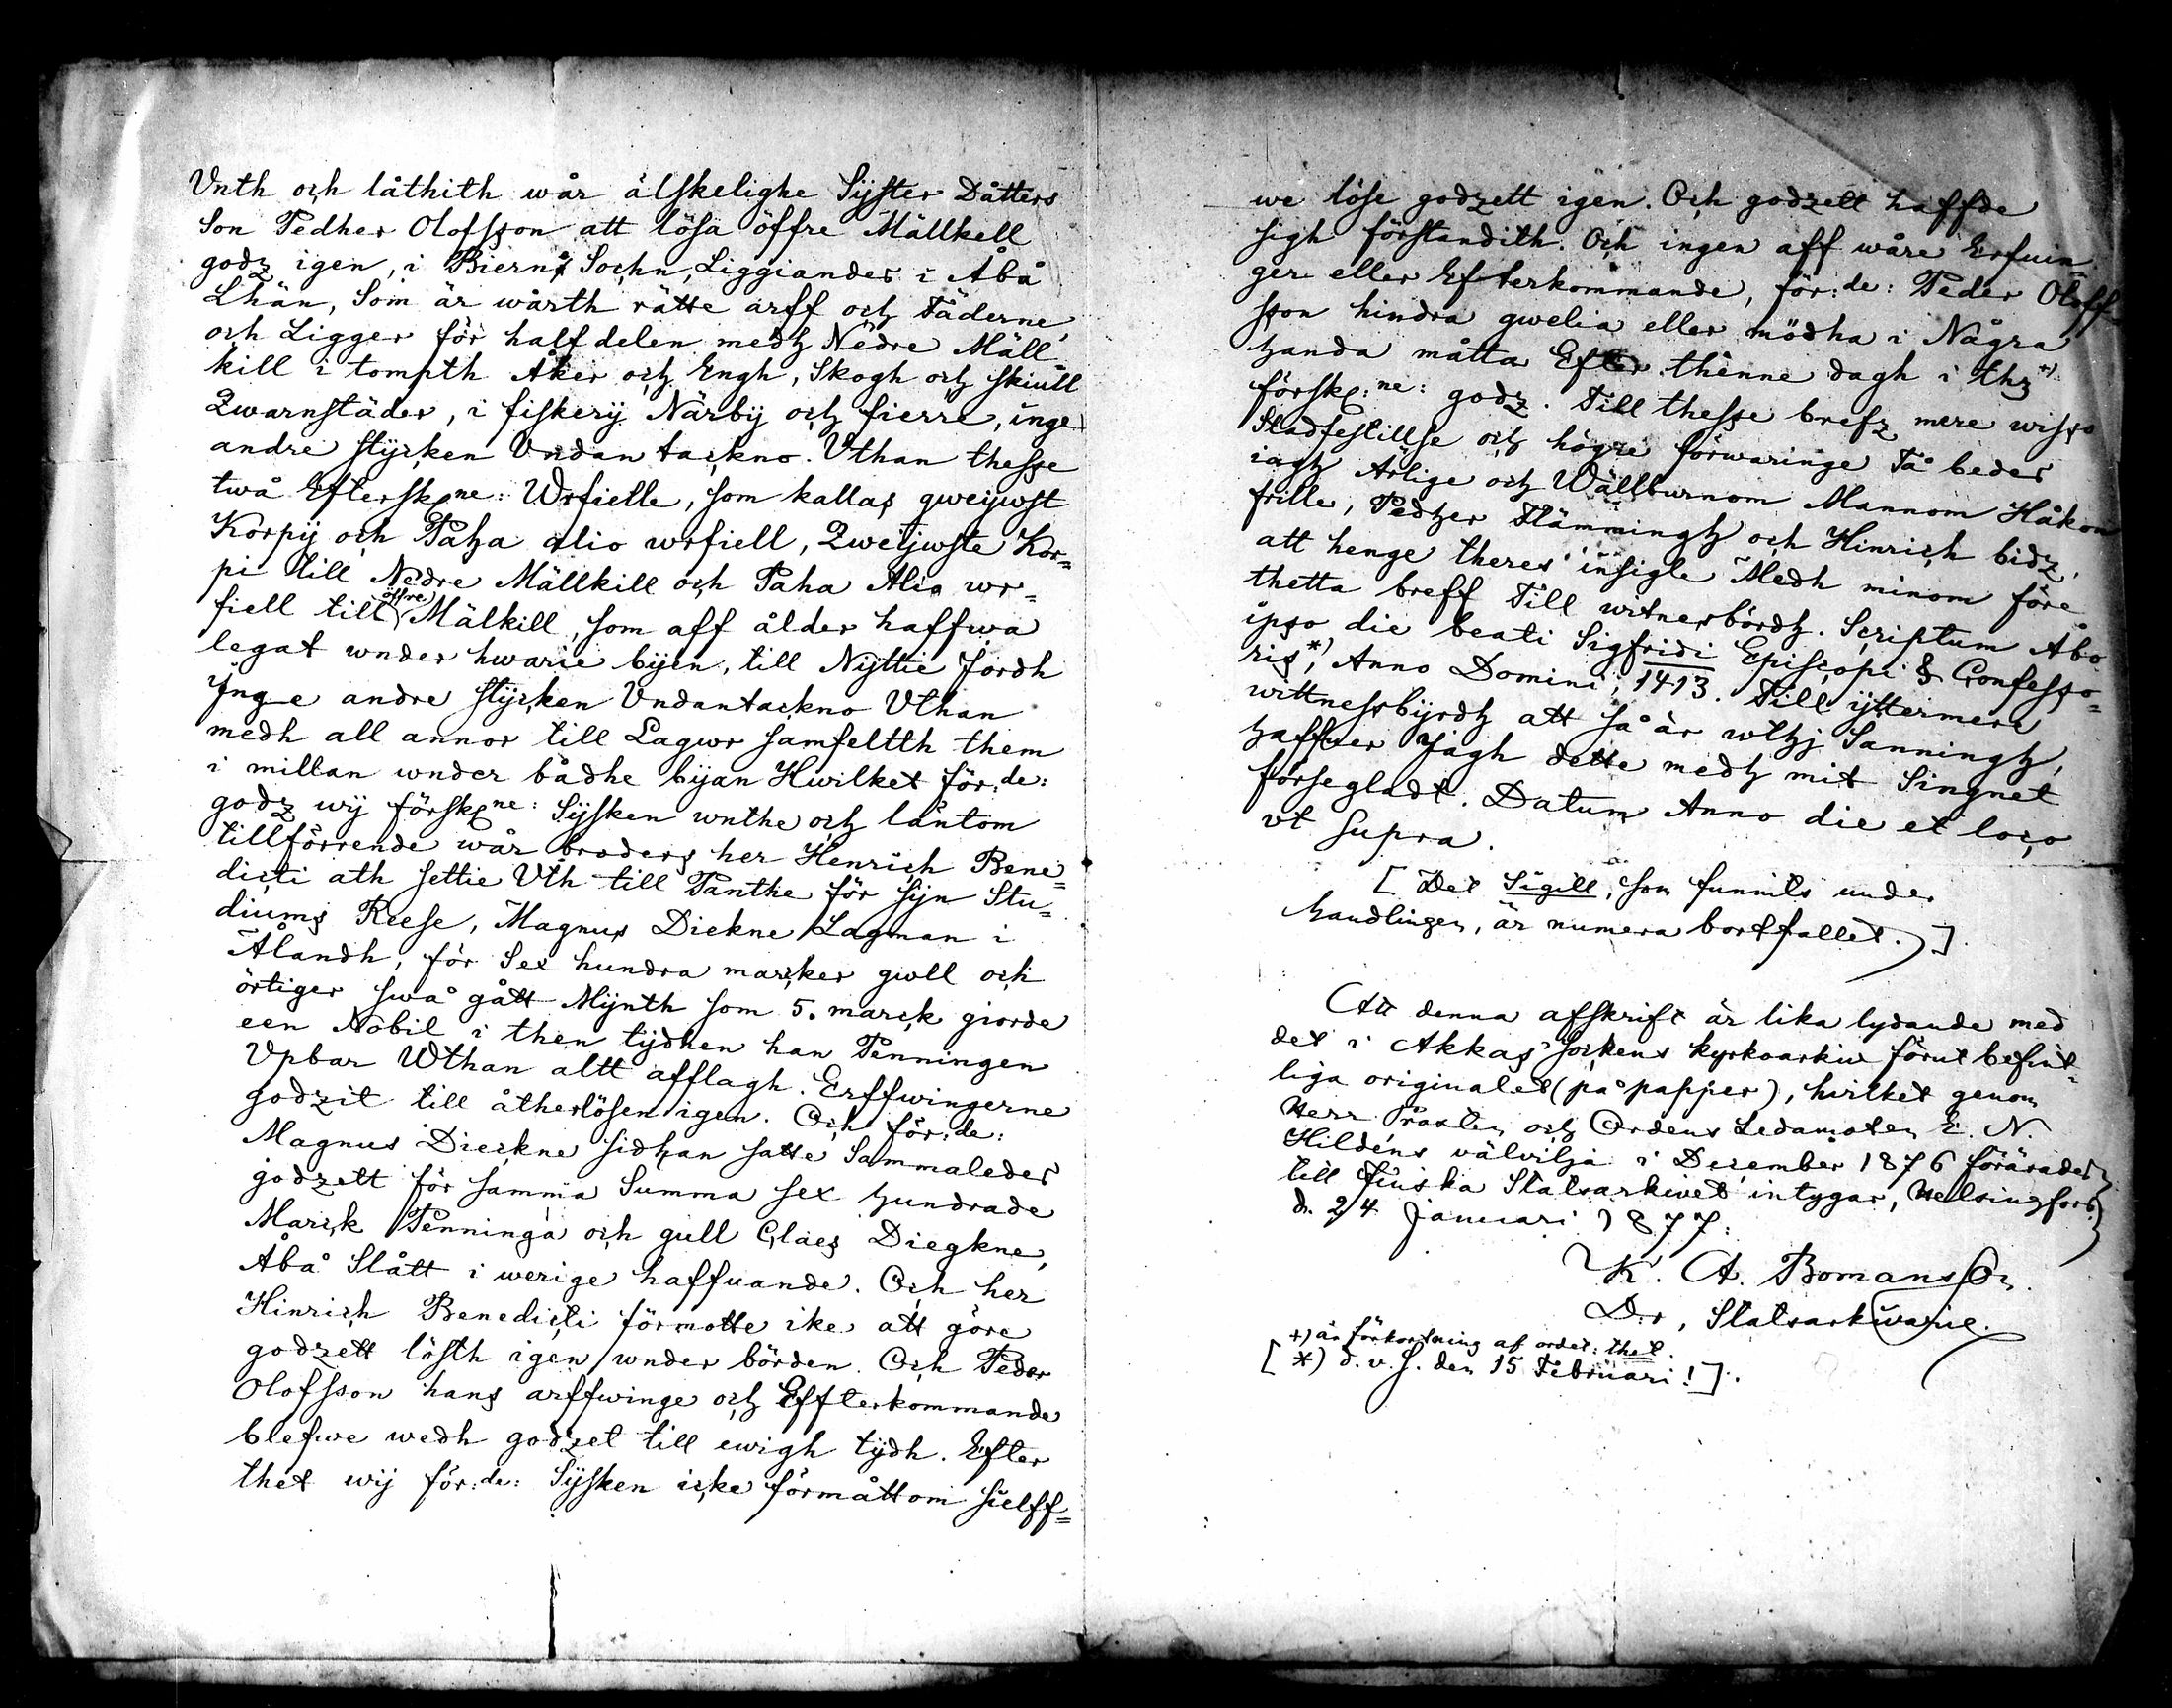 Vnth och låthith wår älskelighe Sÿster Dåtters
Son Pedher Olofsson att lösa öffre Mällkell
godz igen, i Biernå Sochn, Liggiandes i Åbå
Lhän, Som är wårth rätte arff och fäderne,
och Ligger för half delen medh Nedre Mäll
kill i tompth Åker och Engh, Skogh och skiull
Qwarnstäder, i fiskerÿ Närbÿ och fierre, inge
andre stÿcken Vndan tackno. Vthan thesse
twå Efterskne: Wrfielle, som kallas gweijwst
Korpÿ och Paha alio wrfiell, Qweijwste Kor=
pi till Nedre Mällkill och Paha Alio wr=
fiell till öffre Mälkill, som aff ålder haffwa
legat wnder hwarie bÿen, till Nÿttie Jordh
Jnge andre stÿcken Vndantackno Vthan
medh all annor till Lagwr samfeltth them
i millan wnder bådhe bÿan Hwilket för:de:
godz wÿ förskne: Sÿsken wnthe och låntom
tillförrende wår broders her Henrich Bene=
dicti ath settie Vth till Panthe för sÿn Stu=
diums Reese, Magnus Diekne Lagman i
Ålandh, för Sex hundra marcker gwll och
örtiger swå gått Mÿnth som 5. marck giorde
een Nobil i then tÿdhen han Penningen
Vpbar Wthan altt afflagh. Erffwingerne
godzit till åtherlösen igen. Och för:de:
Magnus Dieckne sidhan satte Sammaledes
godzett för samma Summa sex hundrade
Marck Penninga och gull Claes Diegkne,
Åbå Slått i werige haffuande. Och her
Hinrich Benedicti förmotte ike att göre
godzett lösth igen wnder börden. Och Peder
Olofsson hans arffwinge och Effterkommande
blefwe wedh godzet till ewigh tÿdh. Efter
thet wÿ för:de: Sÿsken icke förmåttom sielff=
we löse godzett igen. Och godzett haffde
sigh förstandith. Och ingen aff wåre Erfuin=
ger eller Efterkommande, för:de: Peder Oloff
sson hindra gwelia eller mödha i Några
handa måtta Efter thenne dagh i thz +)
förske:ne: godz. Till thesse brefz mere wisso
Stadfestillse och högre förwaringe Tå beder
iagh Arlige och Wällburnom Mannom Håkon
frille, Pedher Flämmingh och Hinrich bidz,
att henge theres insigle Medh minom före
thetta breff Till witnesbördh. Scriptum Åbo
ipso die beati Sigfridi Episcopi & Confesso=
ris*), Anno Domini, 1413. Till ÿttermere
wittnessbÿrdh att så är wthj Sanningh,
haffuer Jagh dette medh mit Singnet
försegladt. Datum Anno die et loco
vt supra.
[ Det Sigill, som funnits under
handlingen, är numera bortfallet. ]
Att denna afskrift är lika lydande med
det i Akkas sockens kyrkoarkiv förut befint=
liga originalet (på papper), hvilket genom
Herr Prosten och Ordens Ledamoten E. N.
Hildéns välvilja i December 1876 förärades
till Finska Statsarkivet intygar, Helsingfors
d. 24 Januari 1877:
K. A. Bomansson.
Dr, Statsarkivarie.
+) är förkortning af ordet: thet.
[ *) d. v. s. den 15 Februari! ].